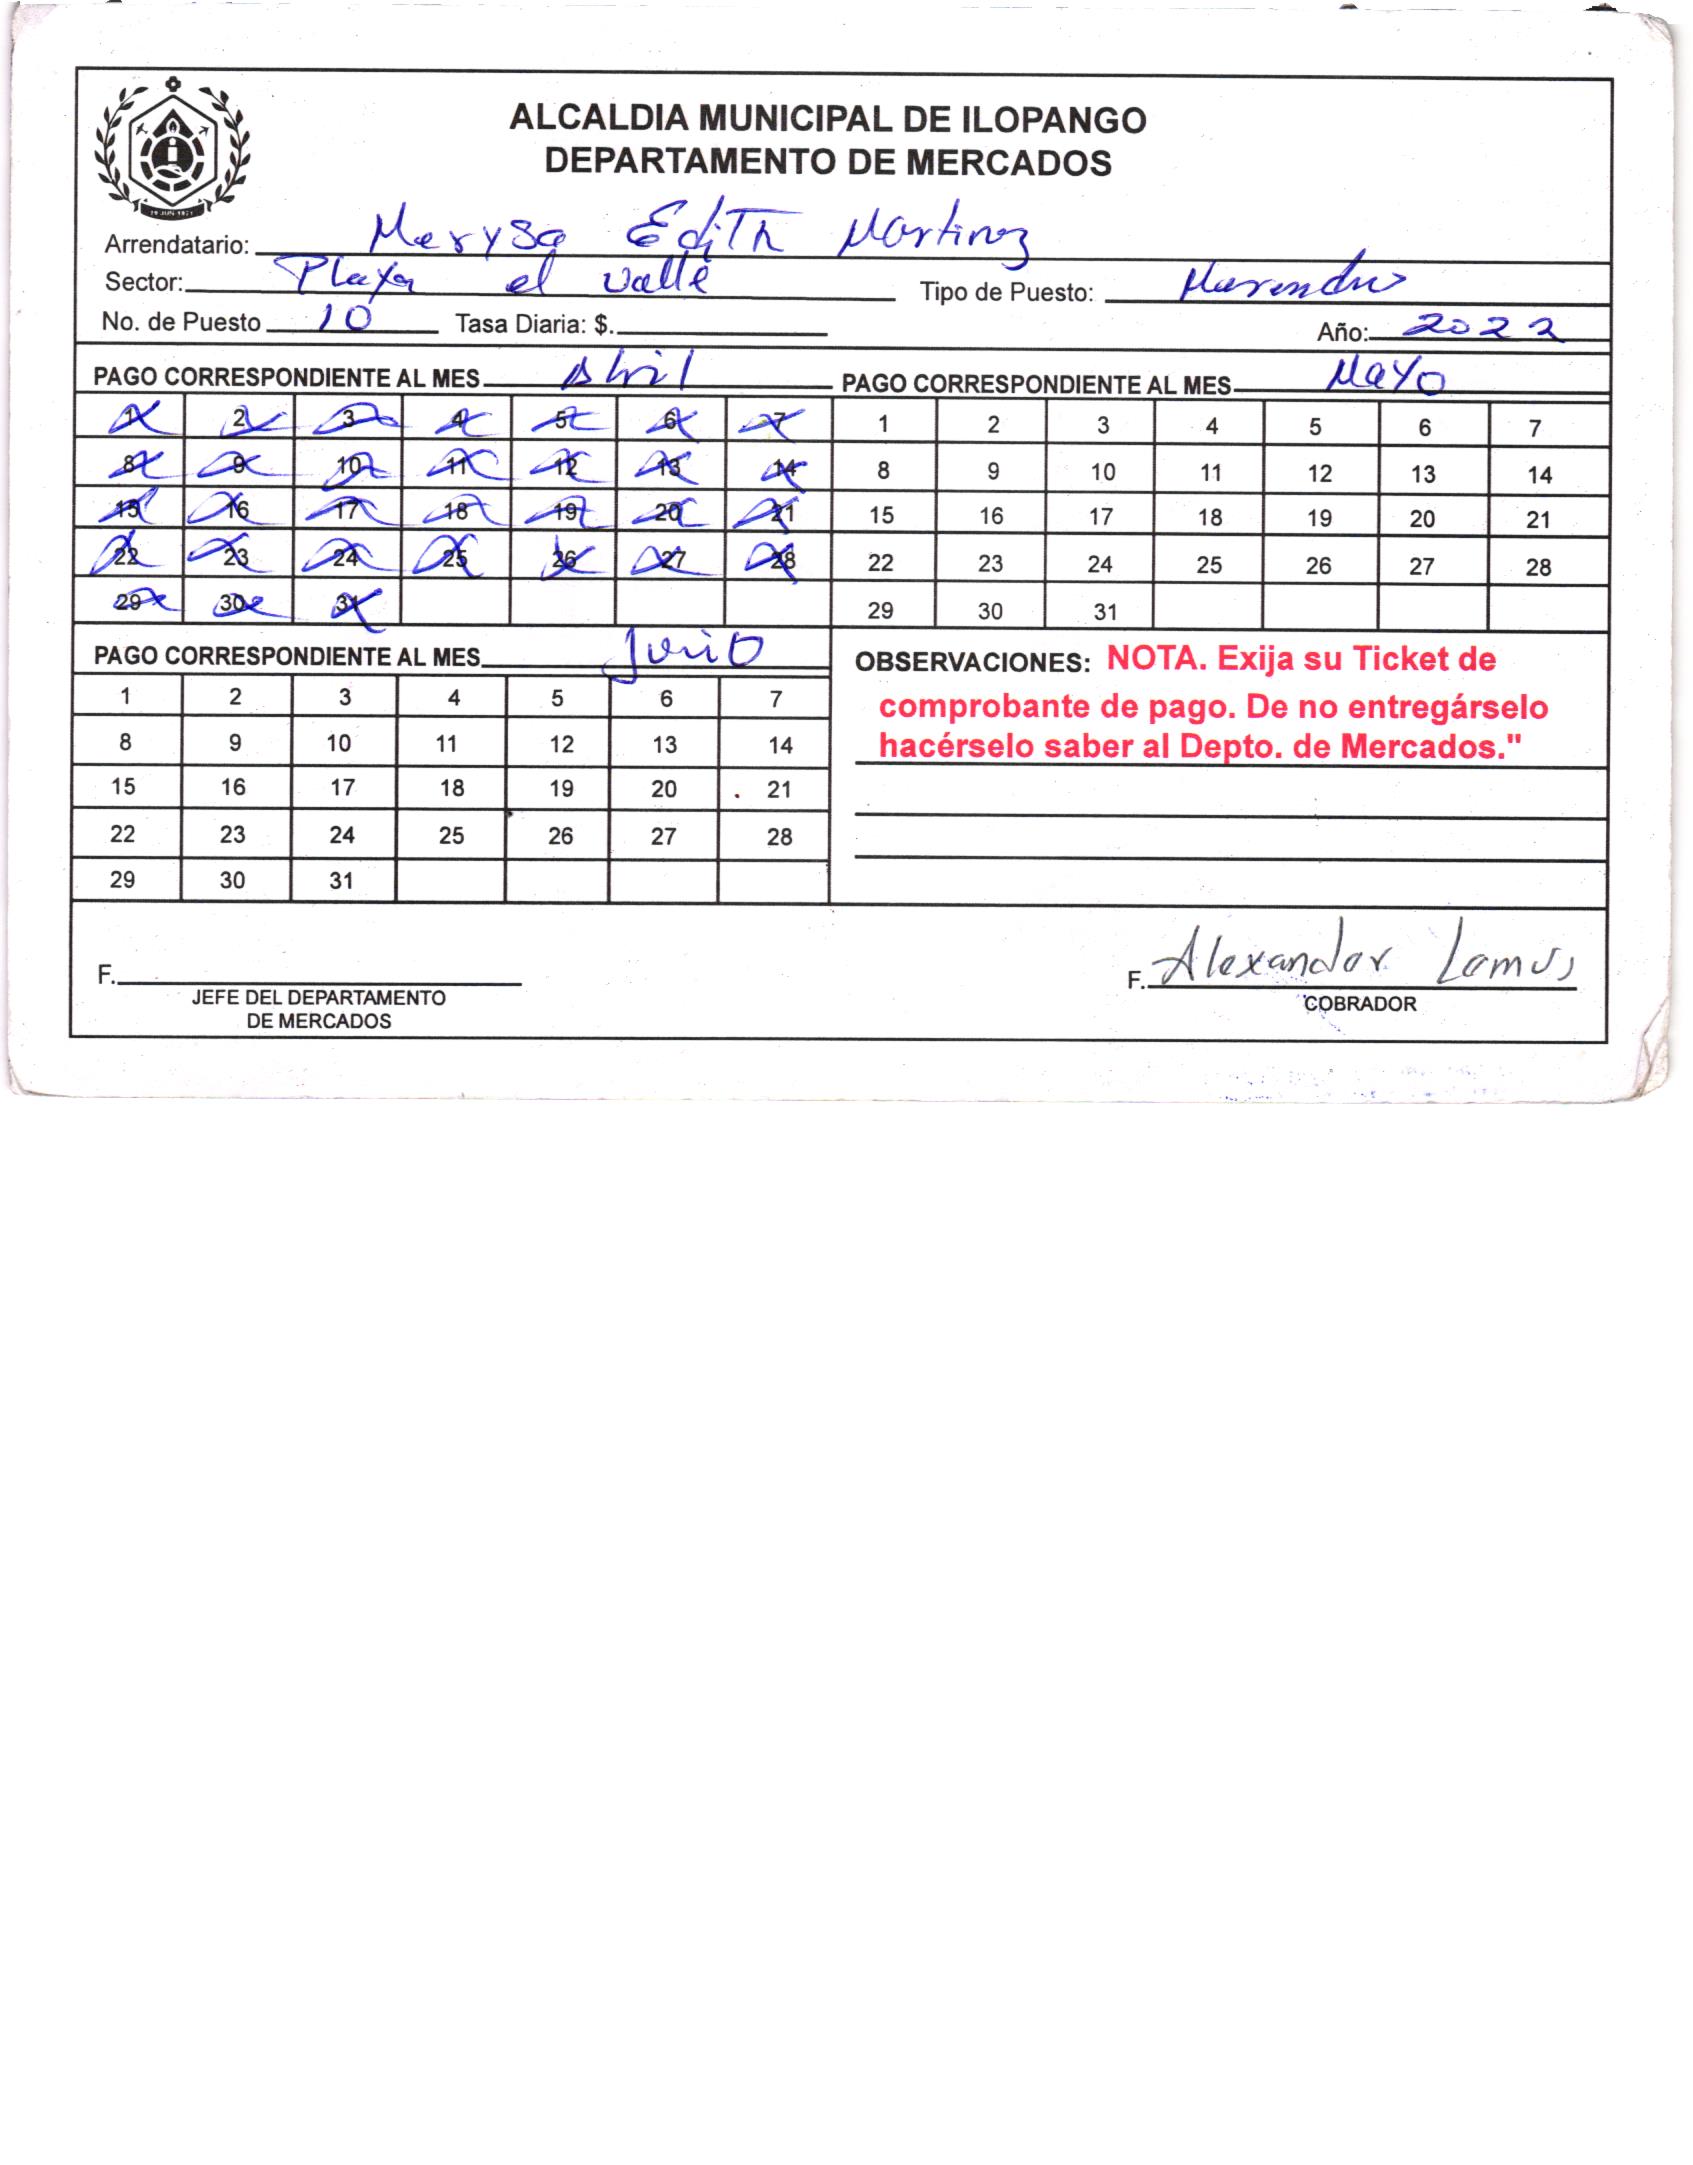 ALCALDIA MUNICIPAL DE ILOPANGO
DEPARTAMENTO DE MERCADOS
Arrendatario: Merysa Edith Martinez
Sector: Playa el valle Tipo de Puesto:
No. de Puesto 10 Tasa Diaria: $. Año: 2022
PAGO CORRESPONDIENTE AL MES Abril
1 2 3 4 5 6 7
8 9 10 11 12 13 14
15 16 17 18 19 20 21
22 23 24 25 26 27 28
29 30 31
PAGO CORRESPONDIENTE AL MES Mayo
1 2 3 4 5 6 7
8 9 10 11 12 13 14
15 16 17 18 19 20 21
22 23 24 25 26 27 28
29 30 31
PAGO CORRESPONDIENTE AL MES Junio
1 2 3 4 5 6 7
8 9 10 11 12 13 14
15 16 17 18 19 20 21
22 23 24 25 26 27 28
29 30 31
OBSERVACIONES: NOTA. Exija su Ticket de
comprobante de pago. De no entregárselo
hacérselo saber al Depto. de Mercados."
F.
JEFE DEL DEPARTAMENTO
DE MERCADOS
F. Alexander Lemus
COBRADOR